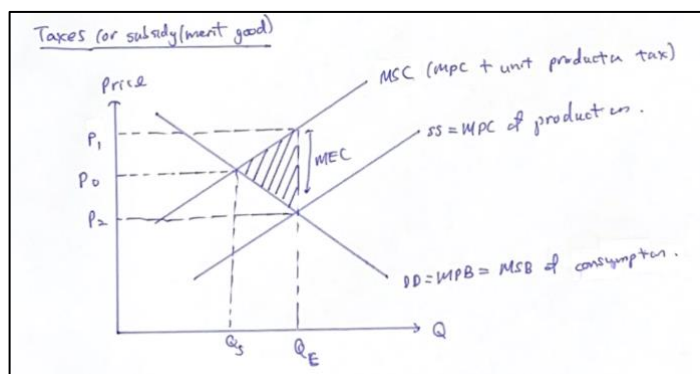 Taxes (or subsidy (merit good)
Price
MSC (MPC + unit production tax)
P₁
SS = MPC of production.
MEC
P₀
P₂
DD = MPB = MSB of consumption.
Q
Qs
QE